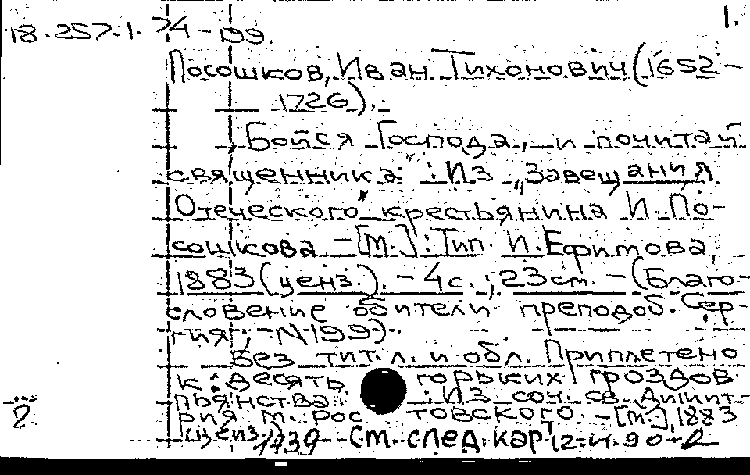 18.257.1.74-199. 1.
Посошков, Иван Тихонович (1652-
1726).
„Бойся Господа, и почитай
священника“: Из „Завещания
Отеческого" крестьянина И. По-
сошкова - [М.]: Тип. И. Ефимова,
1883 (ценз.). - 4 с.; 23 см. - (Благо-
словение обители преподоб. Сер-
гия; №199).
Без тит. л. и обл. Приплетено
к: Десять горьких гроздов
пьянства: Из соч. св. Димит-
рия м. Рос товского. - [М.], 1883
(ценз.) См. след. карт
2